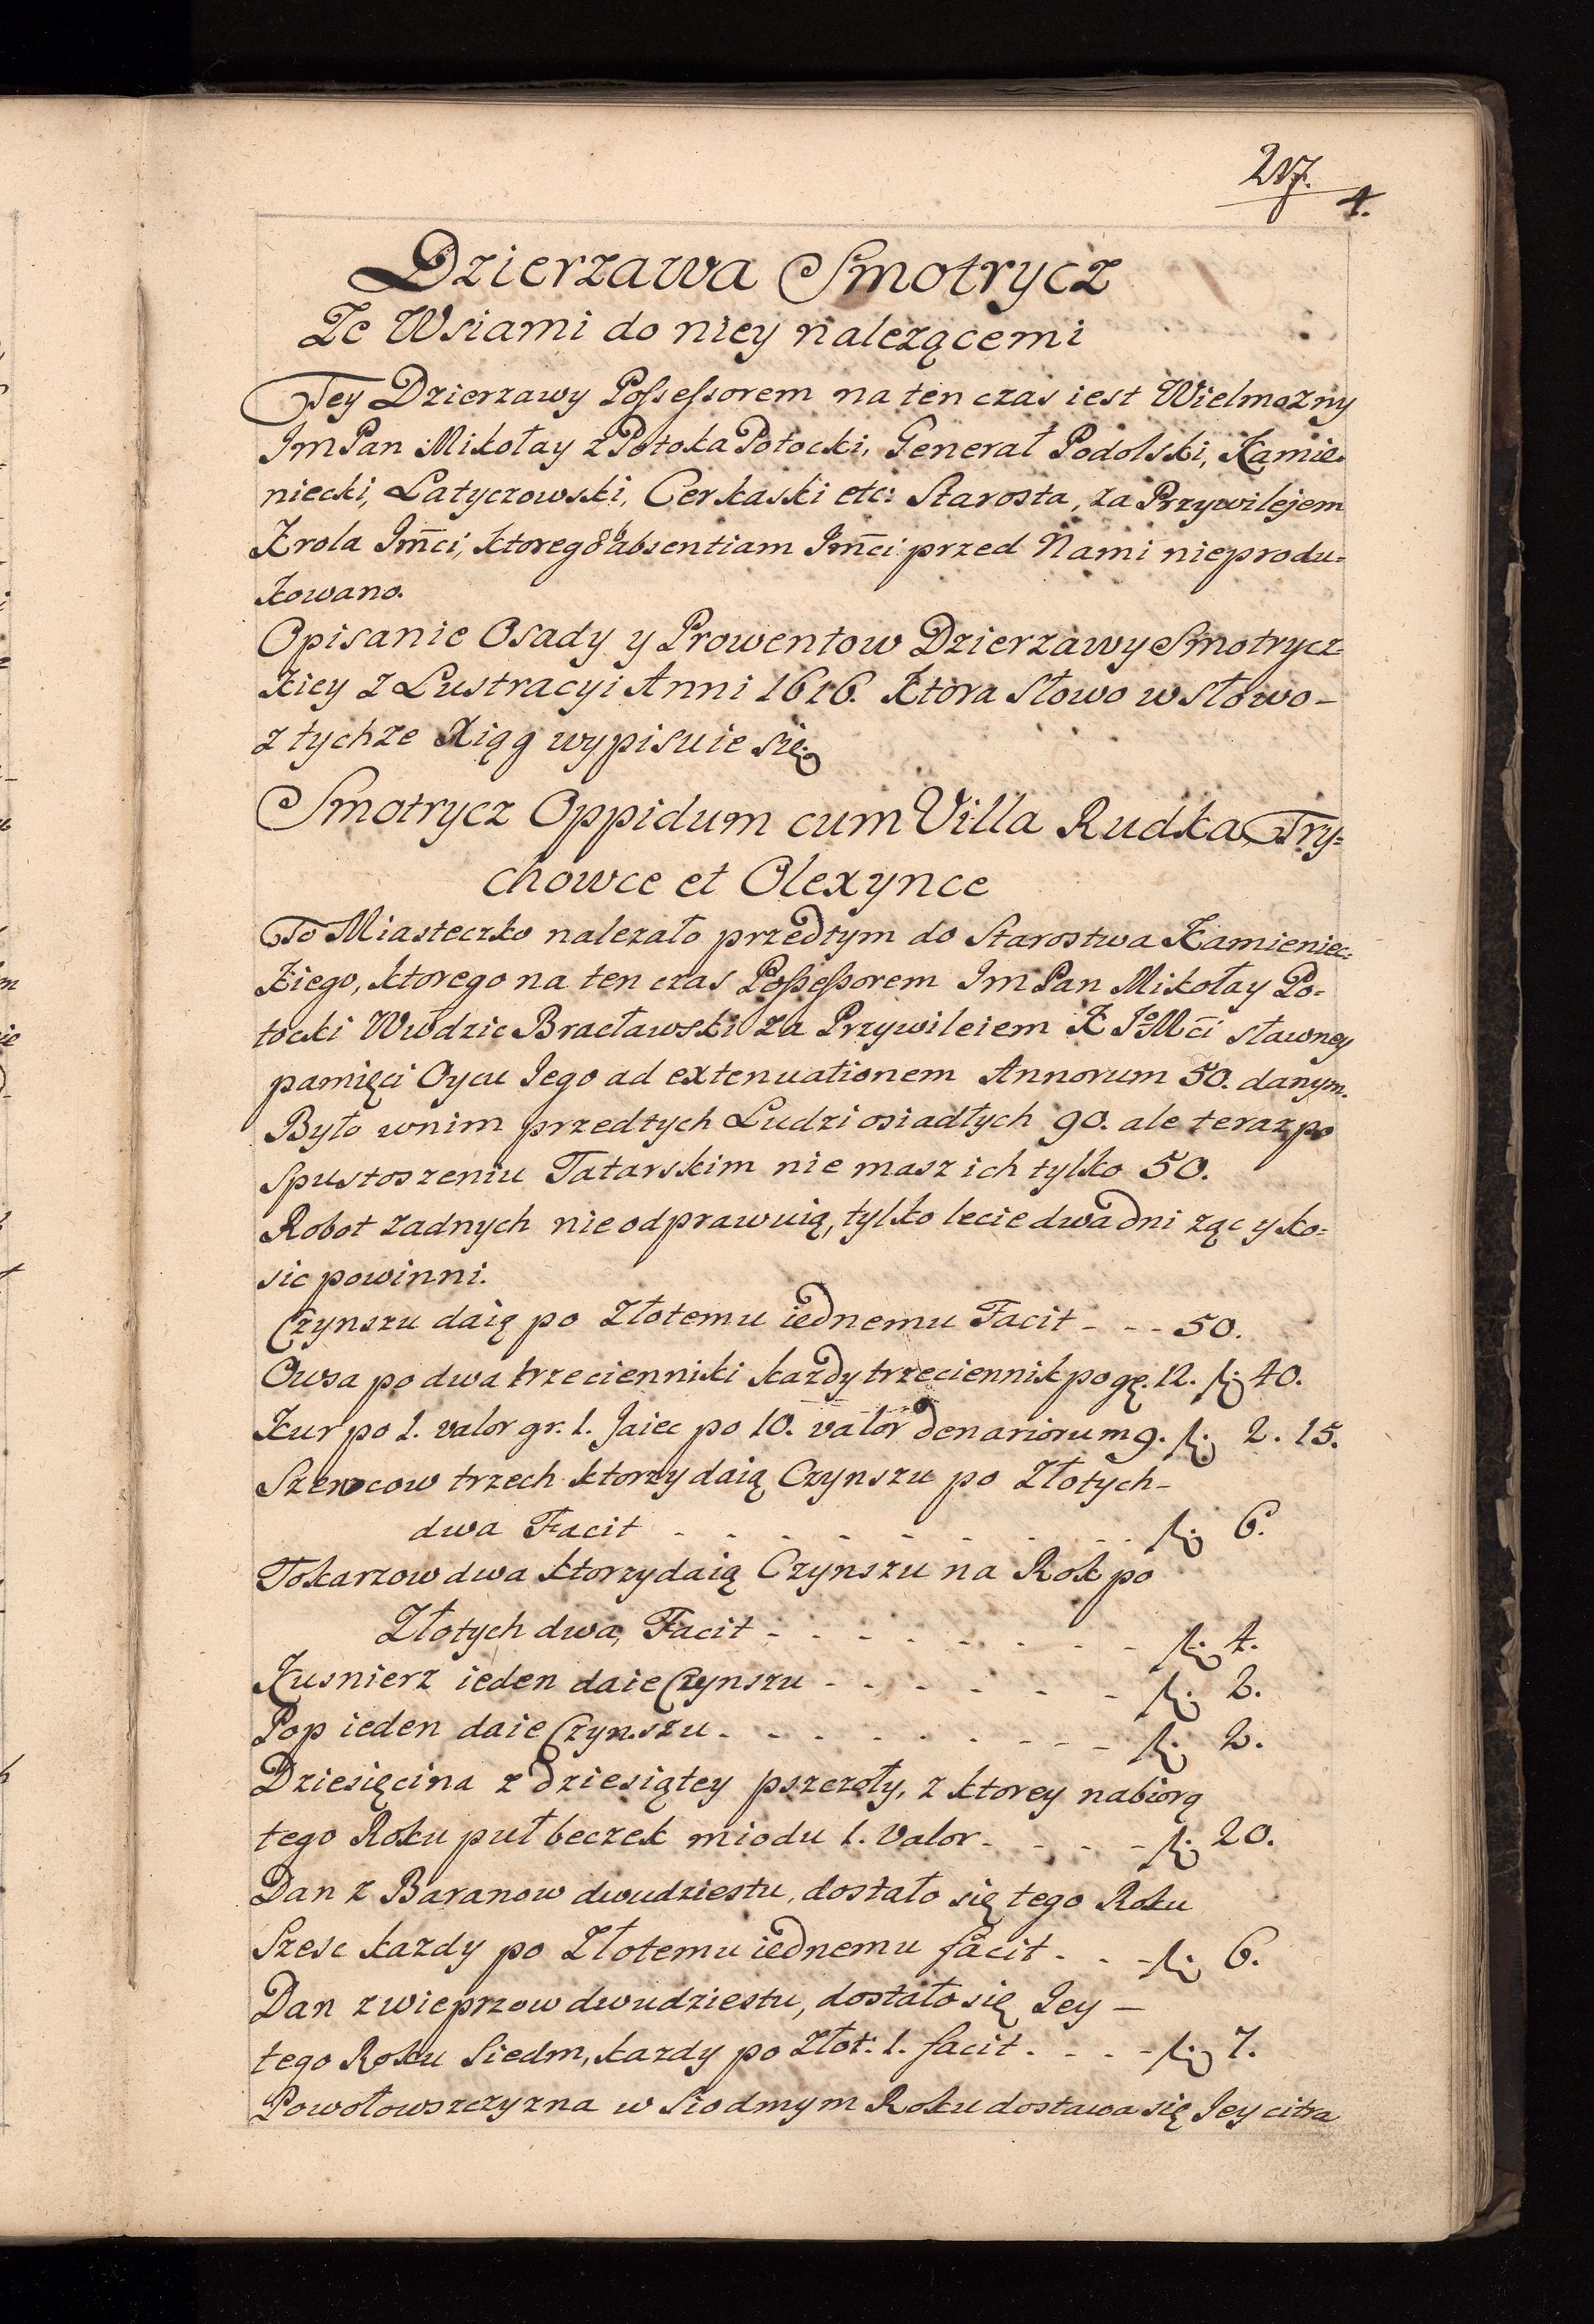 217.
4.
Dzierzawa Smotrycz
Ze Wsiami do niey nalezącemi
Tey Dzierzawy Possessorem na ten czas iest Wielmozny
Im Pan Mikołay z Potoka Potocki, Generał Podolski, Kamie-
niecki, Latyczowski, Cerkaski etc: Starosta, za Przywilejem
Krola Im̄ci, ktorego ob absentiam Im̄ci przed Nami nieprodu=
kowano.
Opisanie Osady y Prowentow Dzierzawy Smotrycz-
kiey z Lustracyi Anni 1616. Ktora słowo w słowo-
z tychze Xiąg wypisuie się
Smotrycz Oppidum cum Villa Rudka, Try=
chowce et Olexynce
To Miasteczko nalezało przedtym do Starostwa Kamieniec=
kiego, ktorego na ten czas Possessorem Im Pan Mikołay Po=
tocki Wwdzic Bracławski za Przywileiem K Jo Mc̄i sławney
pamięci Oycu Jego ad extenuationem Annorum 50. danym.
Było wnim przedtych Ludzi osiadłych 90. ale teraz po
Spustoszeniu Tatarskim nie masz ich tylko 50.
Robot zadnych nie odprawuią, tylko lecie dwa dni ząc y ko=
sic powinni.
Czynszu daią po Złotemu iednemu Facit - - - 50.
Owsa po dwa trzecienniki kazdy trzeciennik po gr. 12. fl. 40.
Kur po 1. valor gr. 1. Jaiec po 10. valor denariorum 9. fl. 2. 15.
Szewcow trzech ktorzy daią Czynszu po Złotych-
dwa Facit - - - - - - - - - fl. 6.
Tokarzow dwa ktorzy daią Czynszu na Rok po
Złotych dwa, Facit - - - - - - - - fl. 4.
Kusnierz ieden daie Czynszu - - - - - - - fl. 2.
Pop ieden daie Czynszu - - - - - - - - - fl. 2.
Dziesięcina z dziesiątey pszczoły, z ktorey nabiorą
tego Roku puł beczek miodu 1. Valor - - - - fl. 20.
Dan z Baranow dwudziestu, dostało się tego Roku
Szesc kazdy po Złotemu iednemu facit - - - fl. 6.
Dan z wieprzow dwudziestu, dostało się Jey -
tego Roku Siedm, kazdy po Złot: 1. facit - - - - fl. 7.
Powołowszczyzna w Siodmym Roku dostawa się Jey citra